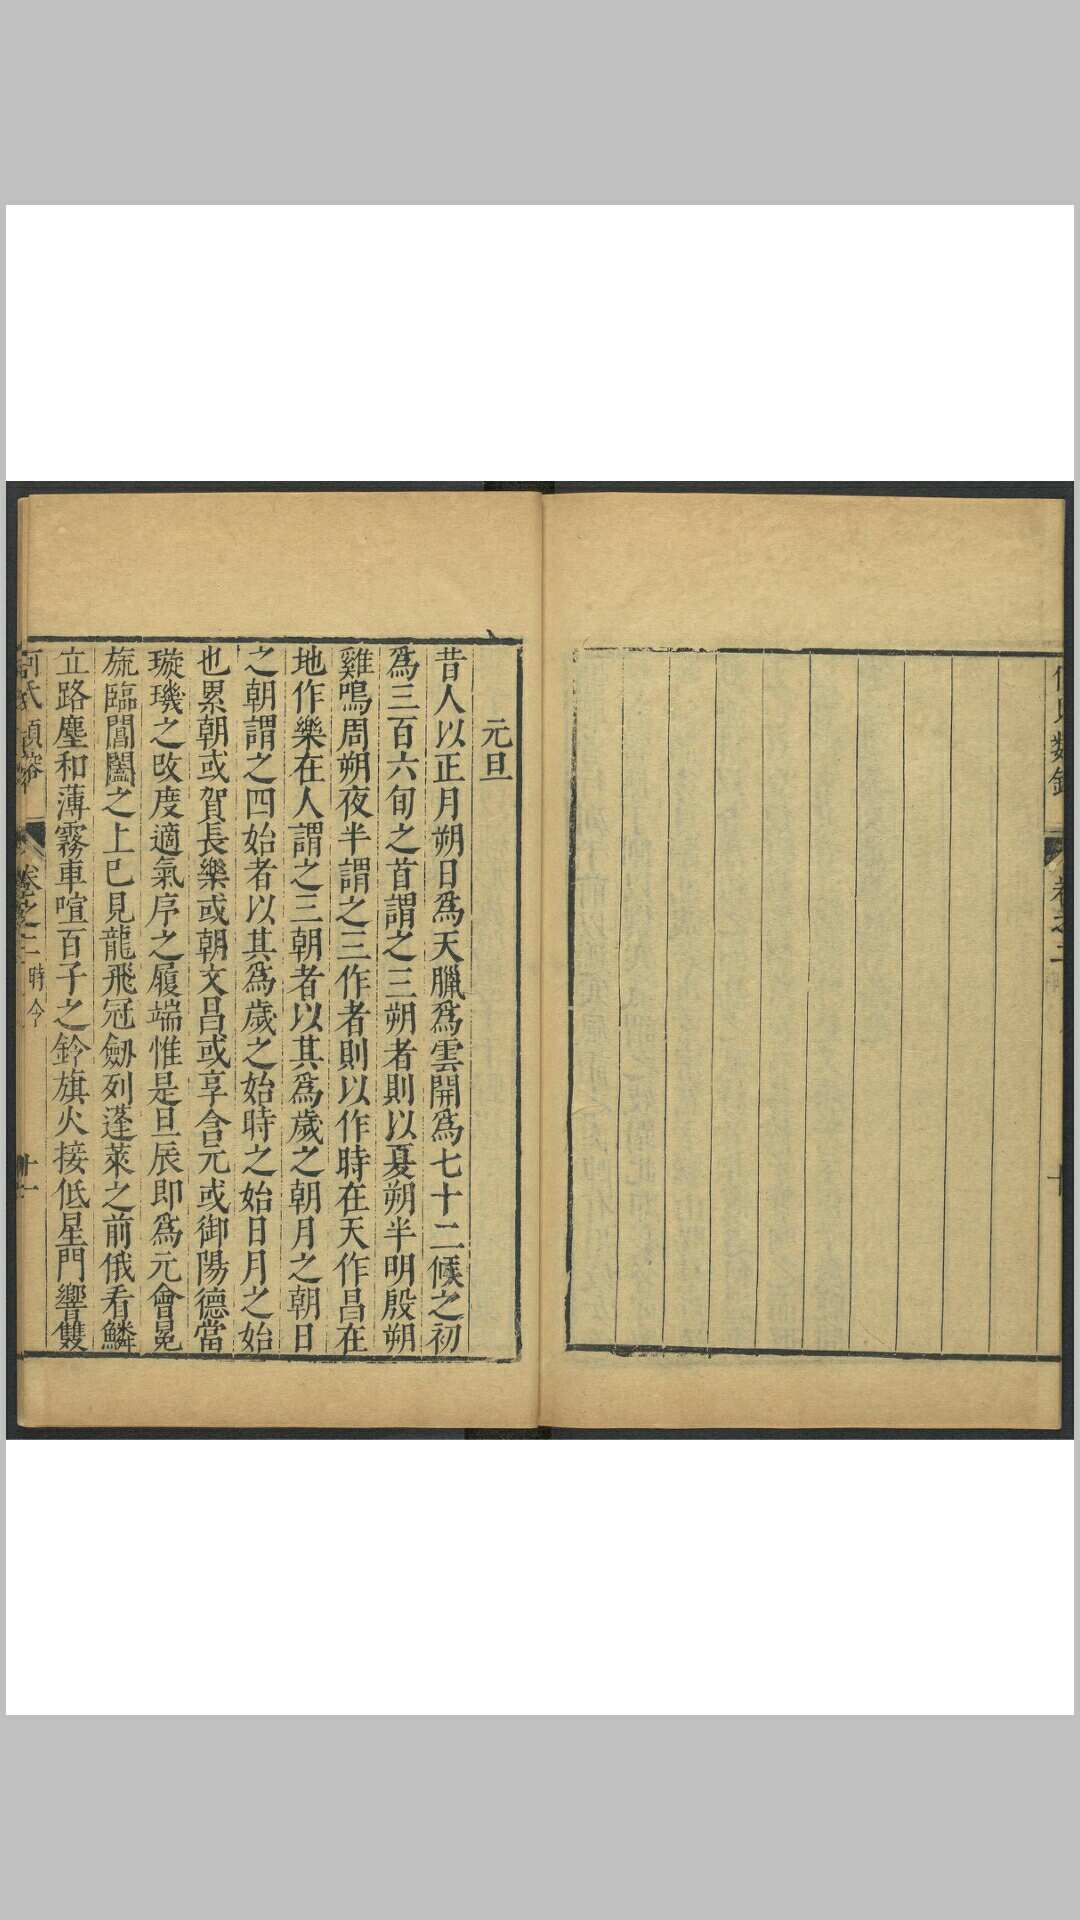 卷之二
十
元旦
昔人以正月朔日為天臘為雲開為七十二候之初
為三百六旬之首謂之三朔者則以夏朔半明殷朔
雞鳴周朔夜半謂之三作者則以作時在天作昌在
地作樂在人謂之三朝者以其為歲之朝月之朝日
之朝謂之四始者以其為歲之始時之始日月之始
也累朝或賀長樂或朝文昌或享含元或御陽德當
璇璣之改度適氣序之履端惟是旦辰即為元會冕
旒臨閶闔之上已見龍飛冠劒列蓬萊之前俄看鱗
立路塵和薄霧車喧百子之鈴旗火接低星門響雙
何氏類鎔
卷之二 時令
十一